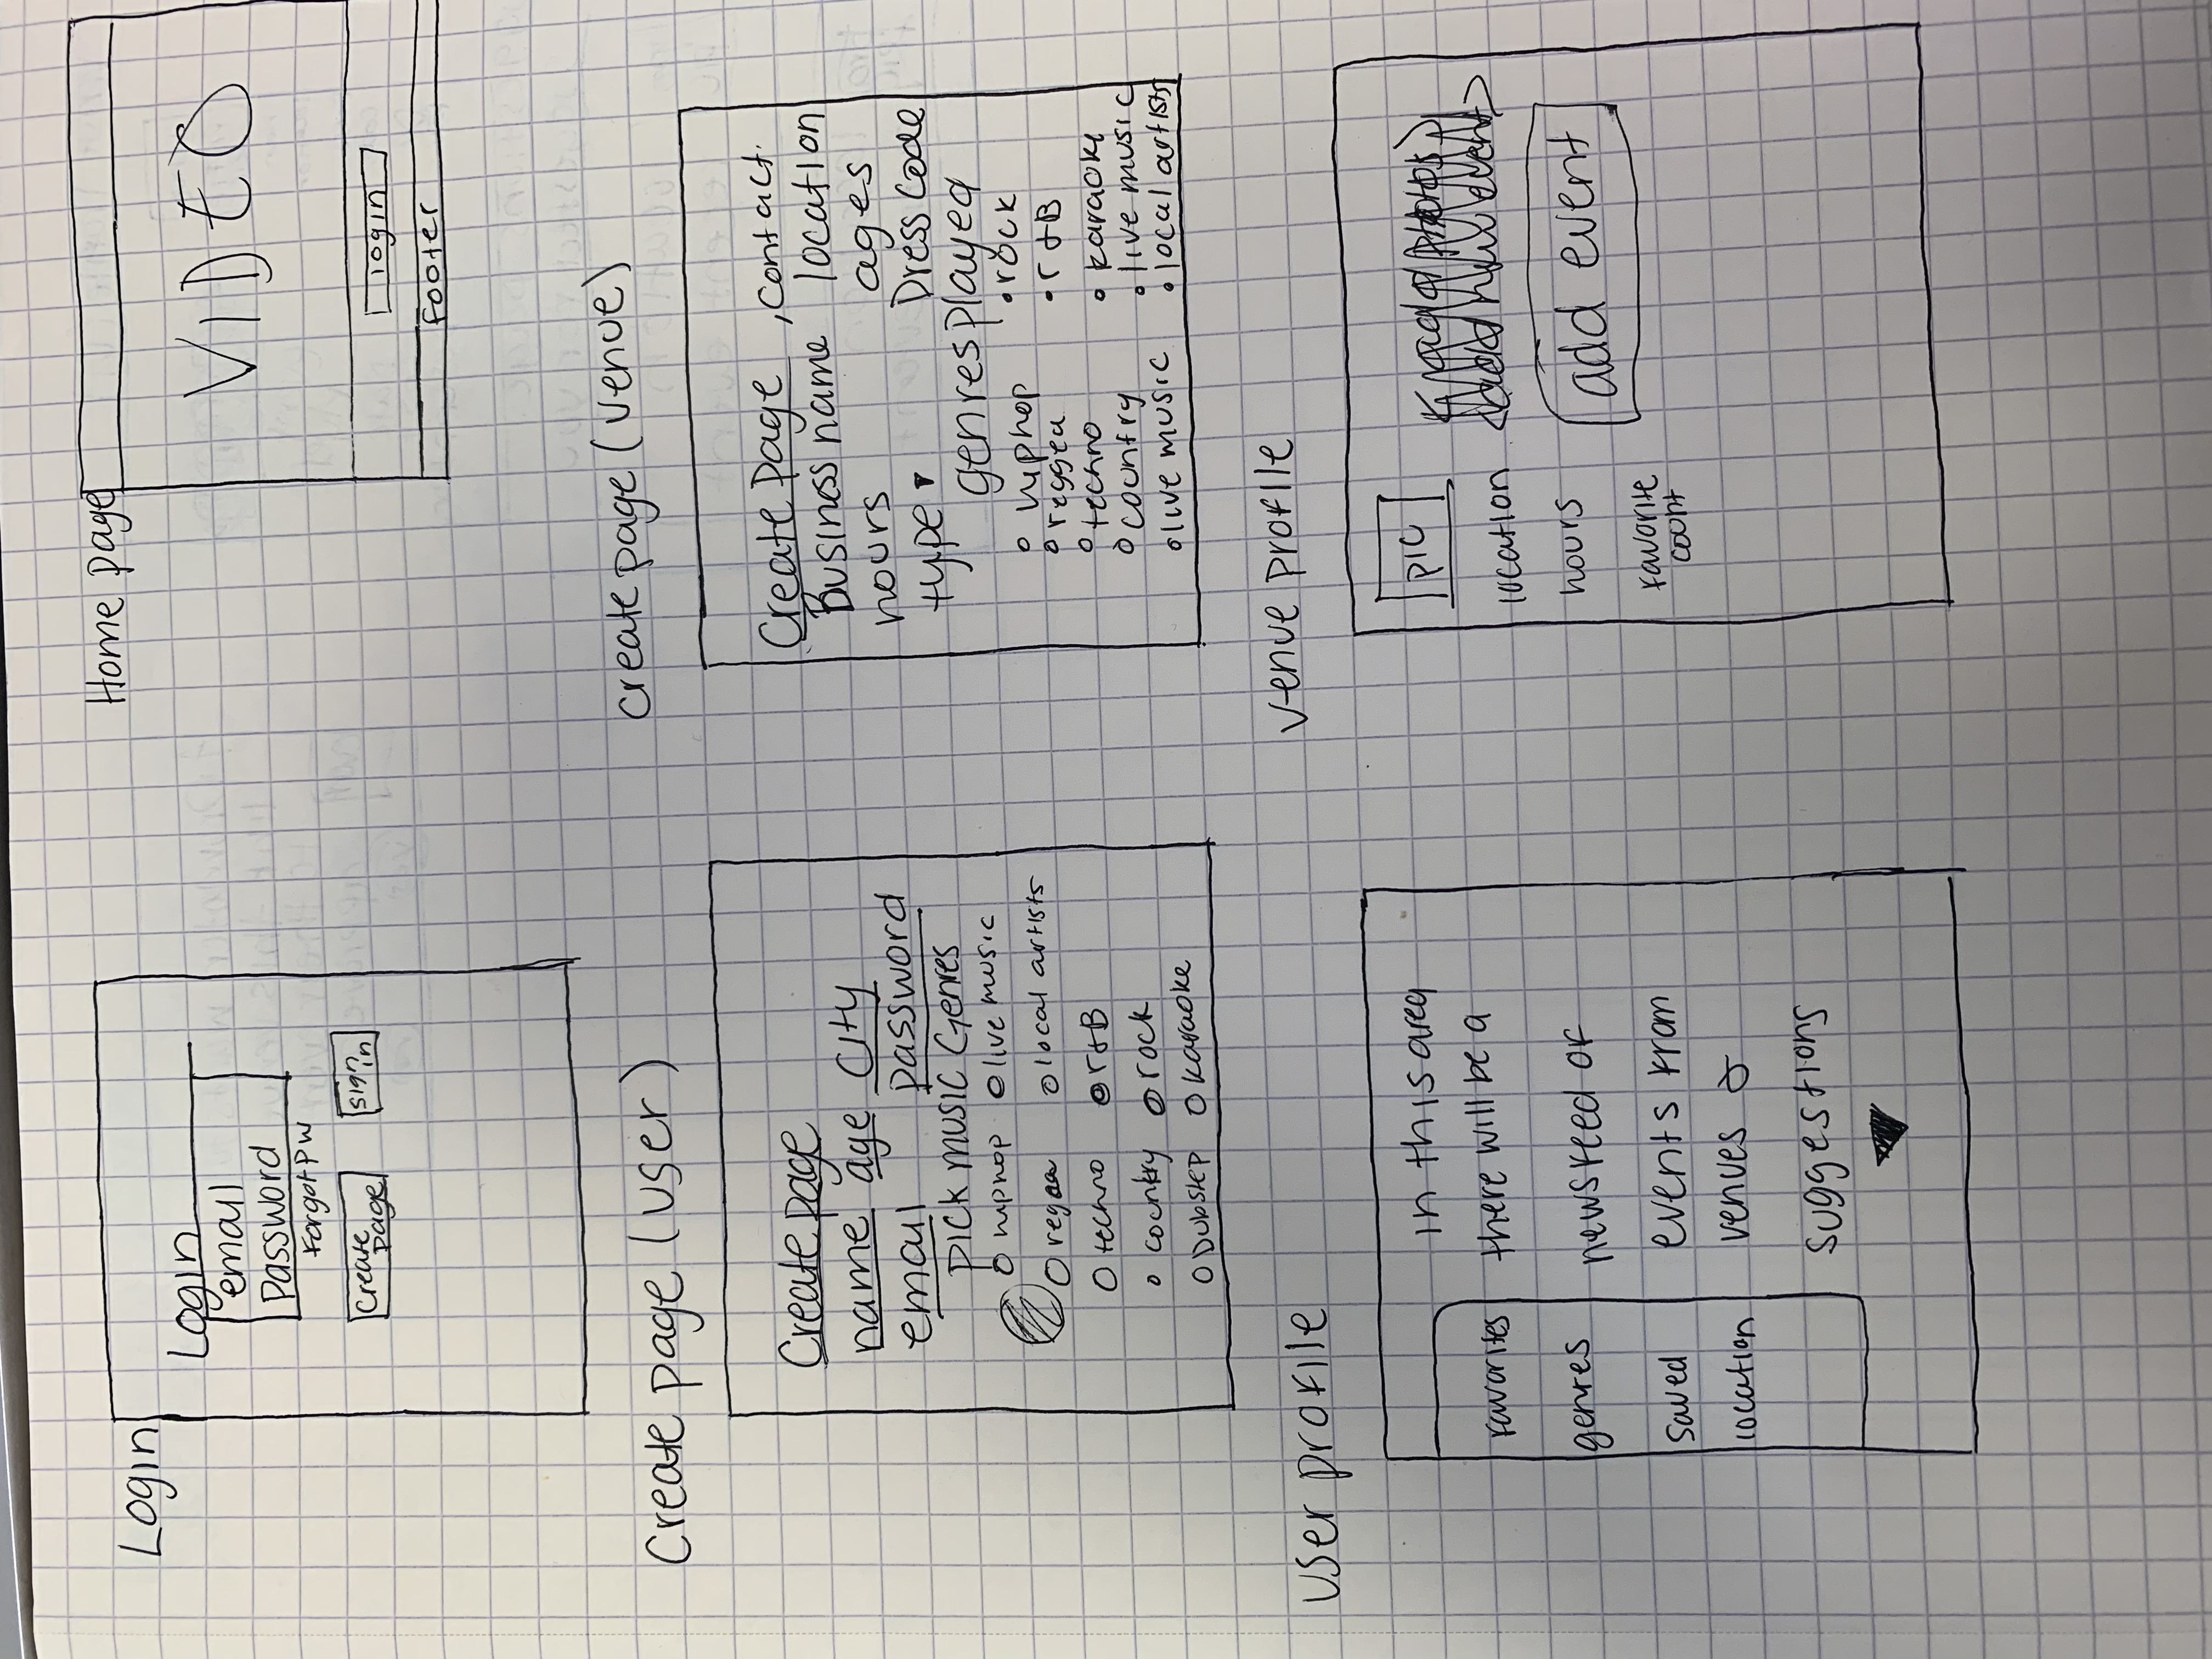 Login
Login
email
password
Forgot PW
Create page
sign in
Home page
VIDEO
login
Footer
Create page (user)
Create page
name age City
email password
pick music Genres
hiphop live music
regaa local artists
techno r&B
country rock
Dubstep karaoke
Create page (venue)
Create page , contact.
Business name location
hours ages
type Dress Code
genres played
hiphop rock
reggea r&B
techno karaoke
country live music
live music local artists
User profile
in this area
Favorites there will be a
genres newsfeed of
Saved events from
location venues &
suggestions
Venue profile
pic
location
hours add event
Favorite
count